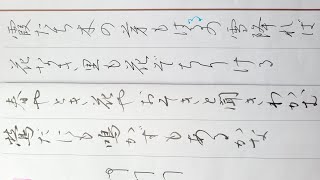 霞たち木の芽もはるの雪降れば
花なき里も花ぞちりける
春やとき花やおそきと聞きわかむ
鶯だにも鳴かずもあるかな